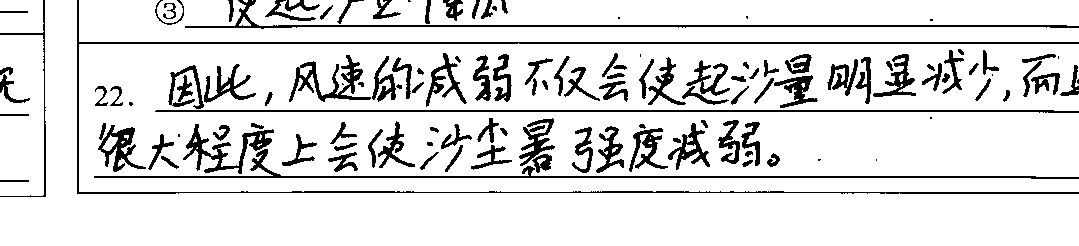 ③ 使起沙量降低
22. 因此,风速的减弱不仅会使起沙量明显减少,而且
很大程度上会使沙尘暴强度减弱。